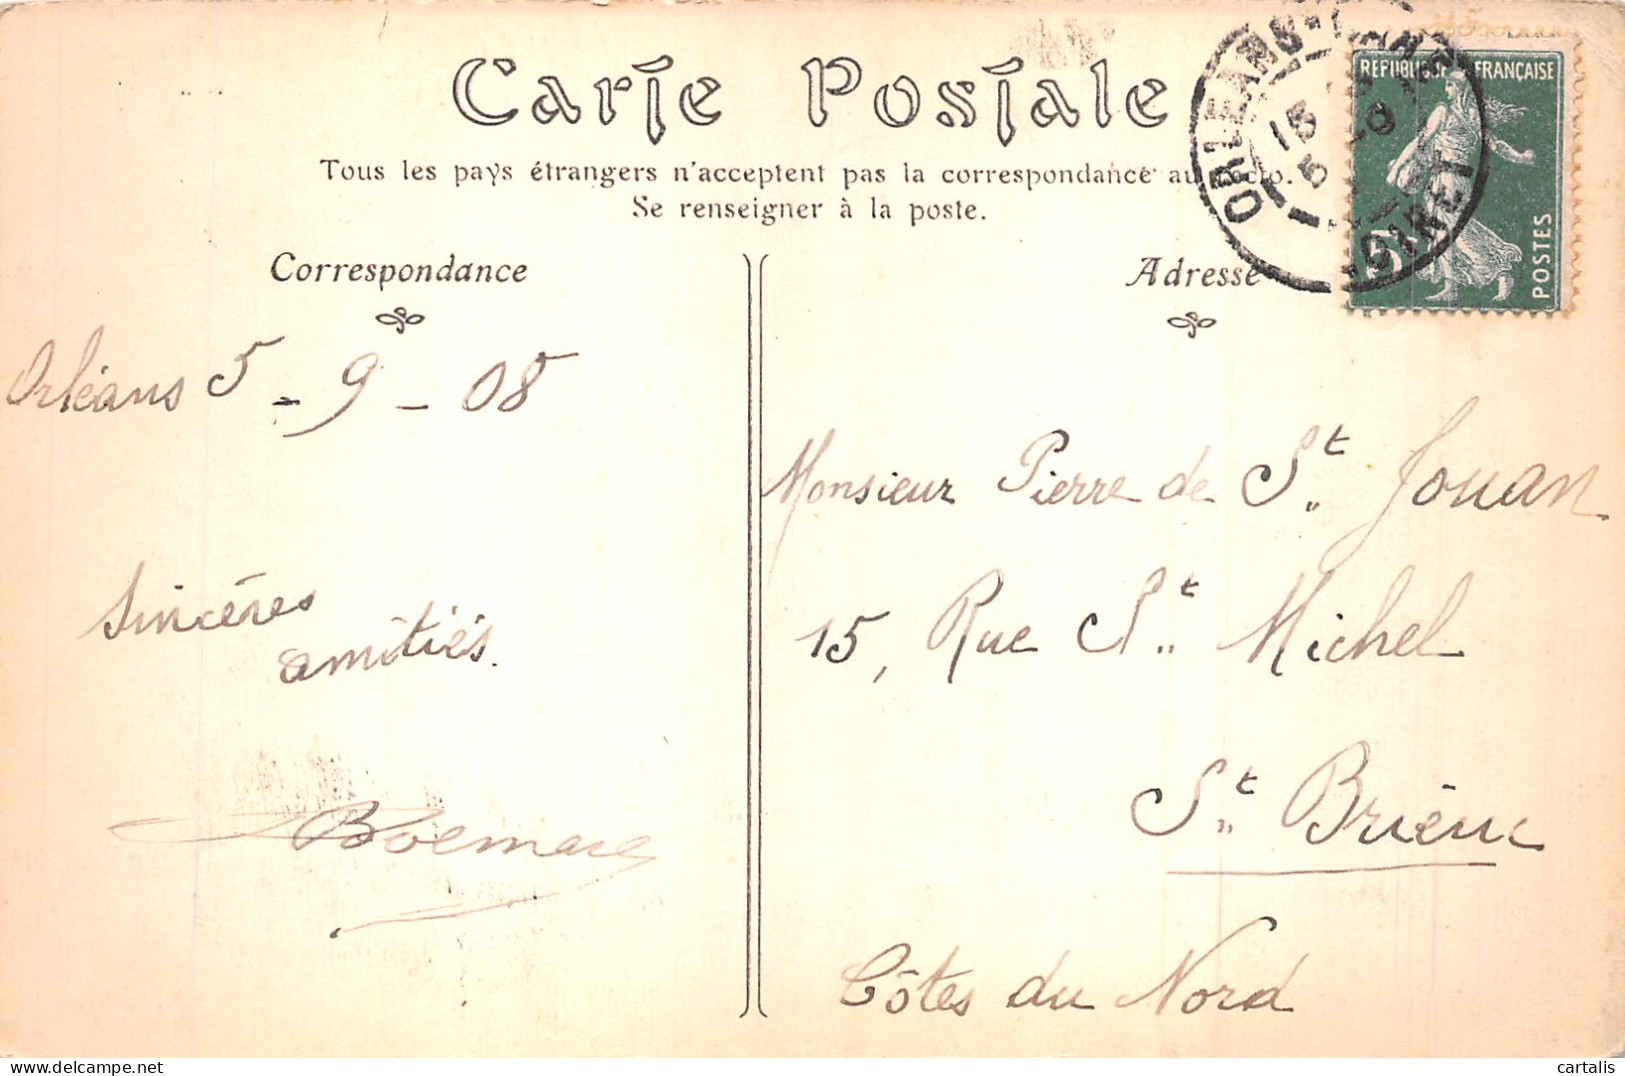 Carte Postale
Tous les pays étrangers n'acceptent pas la correspondance au recto.
Se renseigner à la poste.
Correspondance
Adresse
ORLEANS
15
5
LOIRET
REPUBLIQUE FRANÇAISE
5c
POSTES
Orléans 5 - 9 - 08
Sincères
amitiés.
Monsieur Pierre de St. Jouan
15, Rue St. Michel
St. Brieuc
Côtes du Nord
cartalis